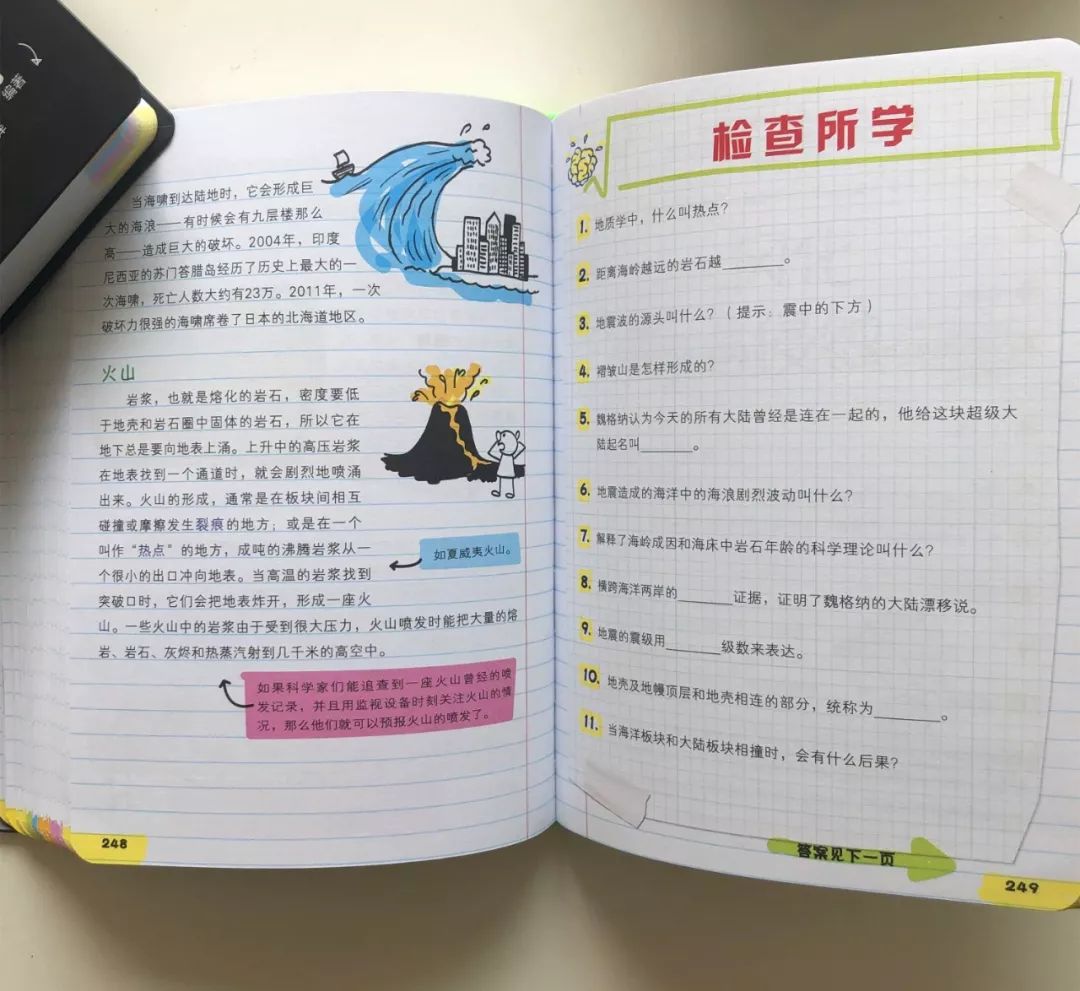 编著
当海啸到达陆地时，它会形成巨
大的海浪——有时候会有九层楼那么
高——造成巨大的破坏。2004年，印度
尼西亚的苏门答腊岛经历了历史上最大的一
次海啸，死亡人数大约有23万。2011年，一次
破坏力很强的海啸席卷了日本的北海道地区。
火山
岩浆，也就是熔化的岩石，密度要低
于地壳和岩石圈中固体的岩石，所以它在
地下总是要向地表上涌。上升中的高压岩浆
在地表找到一个通道时，就会剧烈地喷涌
出来。火山的形成，通常是在板块间相互
碰撞或摩擦发生裂痕的地方；或是在一个
叫作“热点”的地方，成吨的沸腾岩浆从一
个很小的出口冲向地表。当高温的岩浆找到
突破口时，它们会把地表炸开，形成一座火
山。一些火山中的岩浆由于受到很大压力，火山喷发时能把大量的熔
岩、岩石、灰烬和热蒸汽射到几千米的高空中。
如夏威夷火山。
如果科学家们能追查到一座火山曾经的喷
发记录，并且用监视设备时刻关注火山的情
况，那么他们就可以预报火山的喷发了。
248
检查所学
1. 地质学中，什么叫热点？
2. 距离海岭越远的岩石越______。
3. 地震波的源头叫什么？（提示：震中的下方）
4. 褶皱山是怎样形成的？
5. 魏格纳认为今天的所有大陆曾经是连在一起的，他给这块超级大
陆起名叫______。
6. 地震造成的海洋中的海浪剧烈波动叫什么？
7. 解释了海岭成因和海床中岩石年龄的科学理论叫什么？
8. 横跨海洋两岸的______证据，证明了魏格纳的大陆漂移说。
9. 地震的震级用______级数来表达。
10. 地壳及地幔顶层和地壳相连的部分，统称为______。
11. 当海洋板块和大陆板块相撞时，会有什么后果？
答案见下一页
249